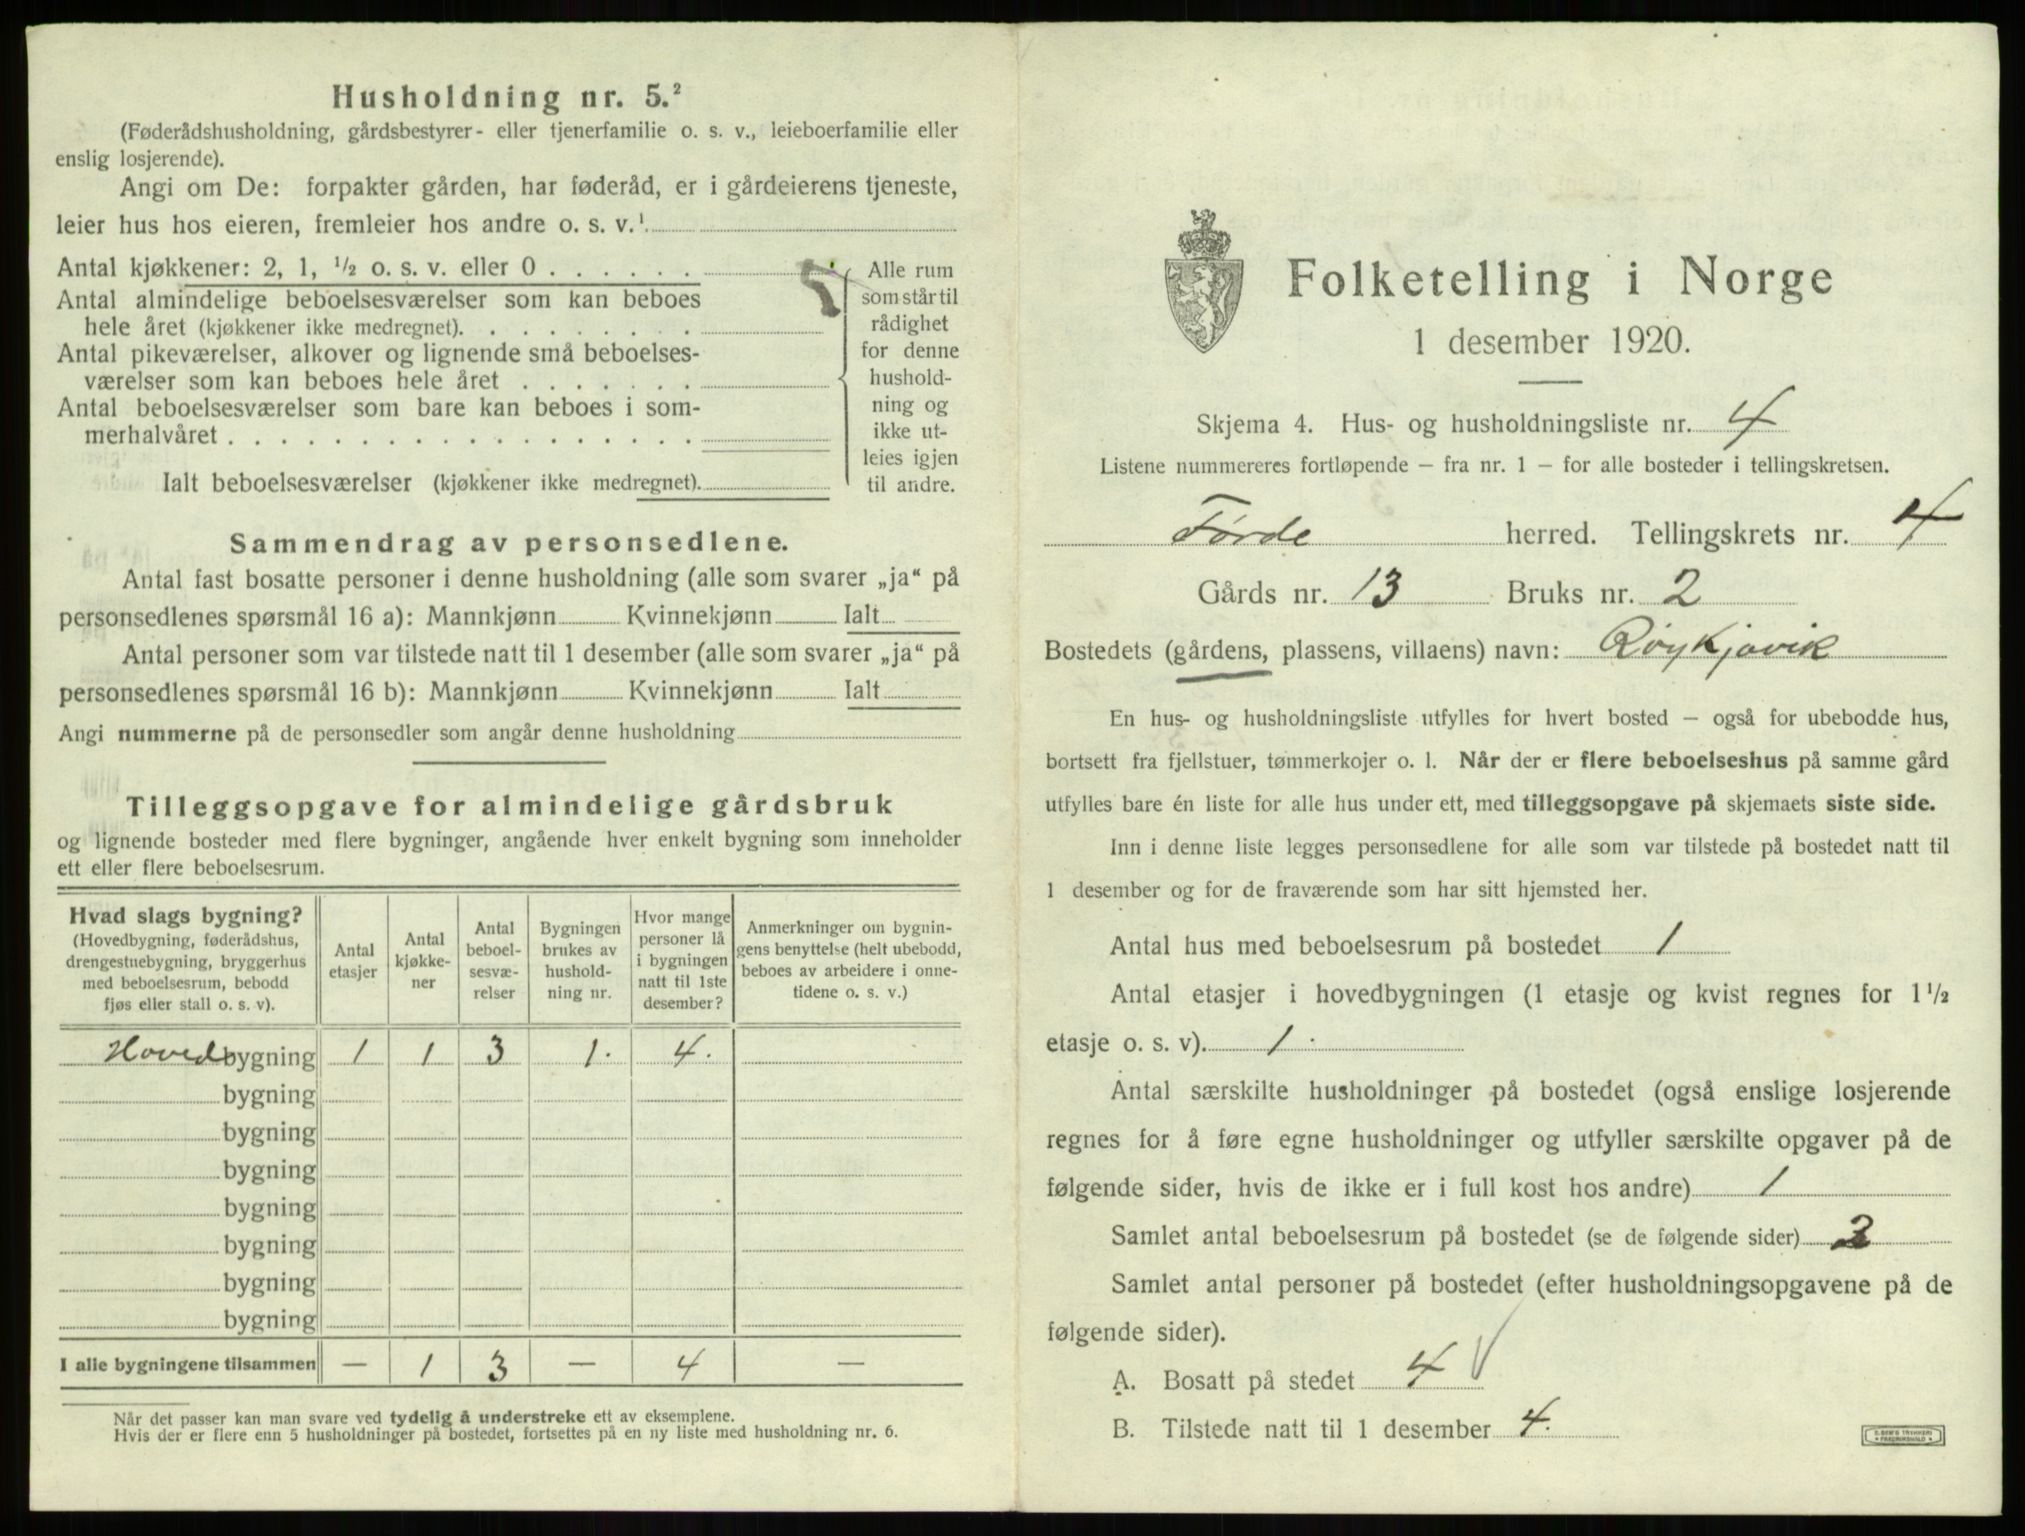 Husholdning nr. 5.²
(Føderådshusholdning, gårdsbestyrer- eller tjenerfamilie o. s. v., leieboerfamilie eller
enslig losjerende).
Angi om De: forpakter gården, har føderåd, er i gårdeierens tjeneste,
leier hus hos eieren, fremleier hos andre o. s. v.¹
Antal kjøkkener: 2, 1, ½ o. s. v. eller 0 . . . . . .
Antal almindelige beboelsesværelser som kan beboes
hele året (kjøkkener ikke medregnet). . . . . . . . .
Antal pikeværelser, alkover og lignende små beboelses-
værelser som kan beboes hele året . . . . . . .
Antal beboelsesværelser som bare kan beboes i som-
merhalvåret . . . . . . . . . . . . . . . . .
Ialt beboelsesværelser (kjøkkener ikke medregnet).
Alle rum
som står til
rådighet
for denne
hushold-
ning og
ikke ut-
leies igjen
til andre.
Sammendrag av personsedlene.
Antal fast bosatte personer i denne husholdning (alle som svarer „ja“ på
personsedlenes spørsmål 16 a): Mannkjønn Kvinnekjønn Ialt
Antal personer som var tilstede natt til 1 desember (alle som svarer „ja“ på
personsedlenes spørsmål 16 b): Mannkjønn Kvinnekjønn Ialt
Angi nummerne på de personsedler som angår denne husholdning
Tilleggsopgave for almindelige gårdsbruk
og lignende bosteder med flere bygninger, angående hver enkelt bygning som inneholder
ett eller flere beboelsesrum.
Hvad slags bygning?
(Hovedbygning, føderådshus,
drengestuebygning, bryggerhus
med beboelsesrum, bebodd
fjøs eller stall o. s. v).
Antal
etasjer
Antal
kjøkke-
ner
Antal
beboel-
sesvæ-
relser
Bygningen
brukes av
hushold-
ning nr.
Hvor mange
personer lå
i bygningen
natt til 1ste
desember?
Anmerkninger om bygnin-
gens benyttelse (helt ubebodd,
beboes av arbeidere i onne-
tidene o. s. v.)
Hovedbygning 1 1 3 1. 4.
bygning
bygning
bygning
bygning
bygning
bygning
bygning
I alle bygningene tilsammen — 1 3 — 4 —
Når det passer kan man svare ved tydelig å understreke ett av eksemplene.
Hvis der er flere enn 5 husholdninger på bostedet, fortsettes på en ny liste med husholdning nr. 6.
Folketelling i Norge
1 desember 1920.
Skjema 4. Hus- og husholdningsliste nr. 4
Listene nummereres fortløpende — fra nr. 1 — for alle bosteder i tellingskretsen.
Førde herred. Tellingskrets nr. 4
Gårds nr. 13 Bruks nr. 2
Bostedets (gårdens, plassens, villaens) navn: Røykjavik
En hus- og husholdningsliste utfylles for hvert bosted — også for ubebodde hus,
bortsett fra fjellstuer, tømmerkojer o. l. Når der er flere beboelseshus på samme gård
utfylles bare én liste for alle hus under ett, med tilleggsopgave på skjemaets siste side.
Inn i denne liste legges personsedlene for alle som var tilstede på bostedet natt til
1 desember og for de fraværende som har sitt hjemsted her.
Antal hus med beboelsesrum på bostedet 1
Antal etasjer i hovedbygningen (1 etasje og kvist regnes for 1½
etasje o. s. v). 1.
Antal særskilte husholdninger på bostedet (også enslige losjerende
regnes for å føre egne husholdninger og utfyller særskilte opgaver på de
følgende sider, hvis de ikke er i full kost hos andre) 1
Samlet antal beboelsesrum på bostedet (se de følgende sider) 3
Samlet antal personer på bostedet (efter husholdningsopgavene på de
følgende sider).
A. Bosatt på stedet 4
B. Tilstede natt til 1 desember 4.